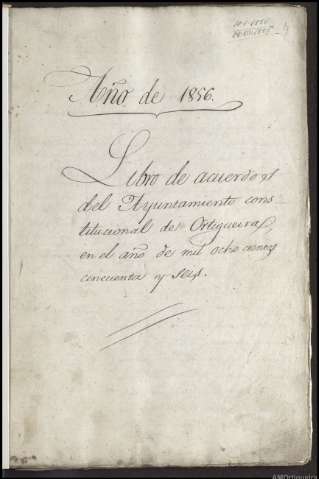 Año de 1856.
Libro de acuerdos
del Ayuntamiento cons
titucional de Ortigueira,
en el año de mil ocho cientos
cincuenta y seis.
AMOrtigueira